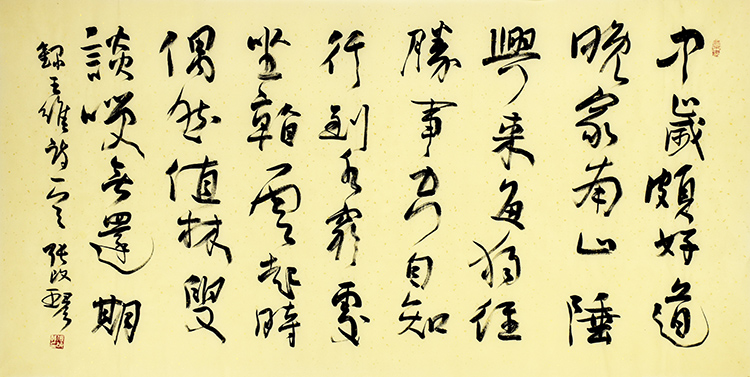 中歲頗好道
晚家南山陲
興来每獨往
勝事空自知
行到水窮處
坐看雲起時
偶然值林叟
談咲無還期
録王維詩一首 張改琴